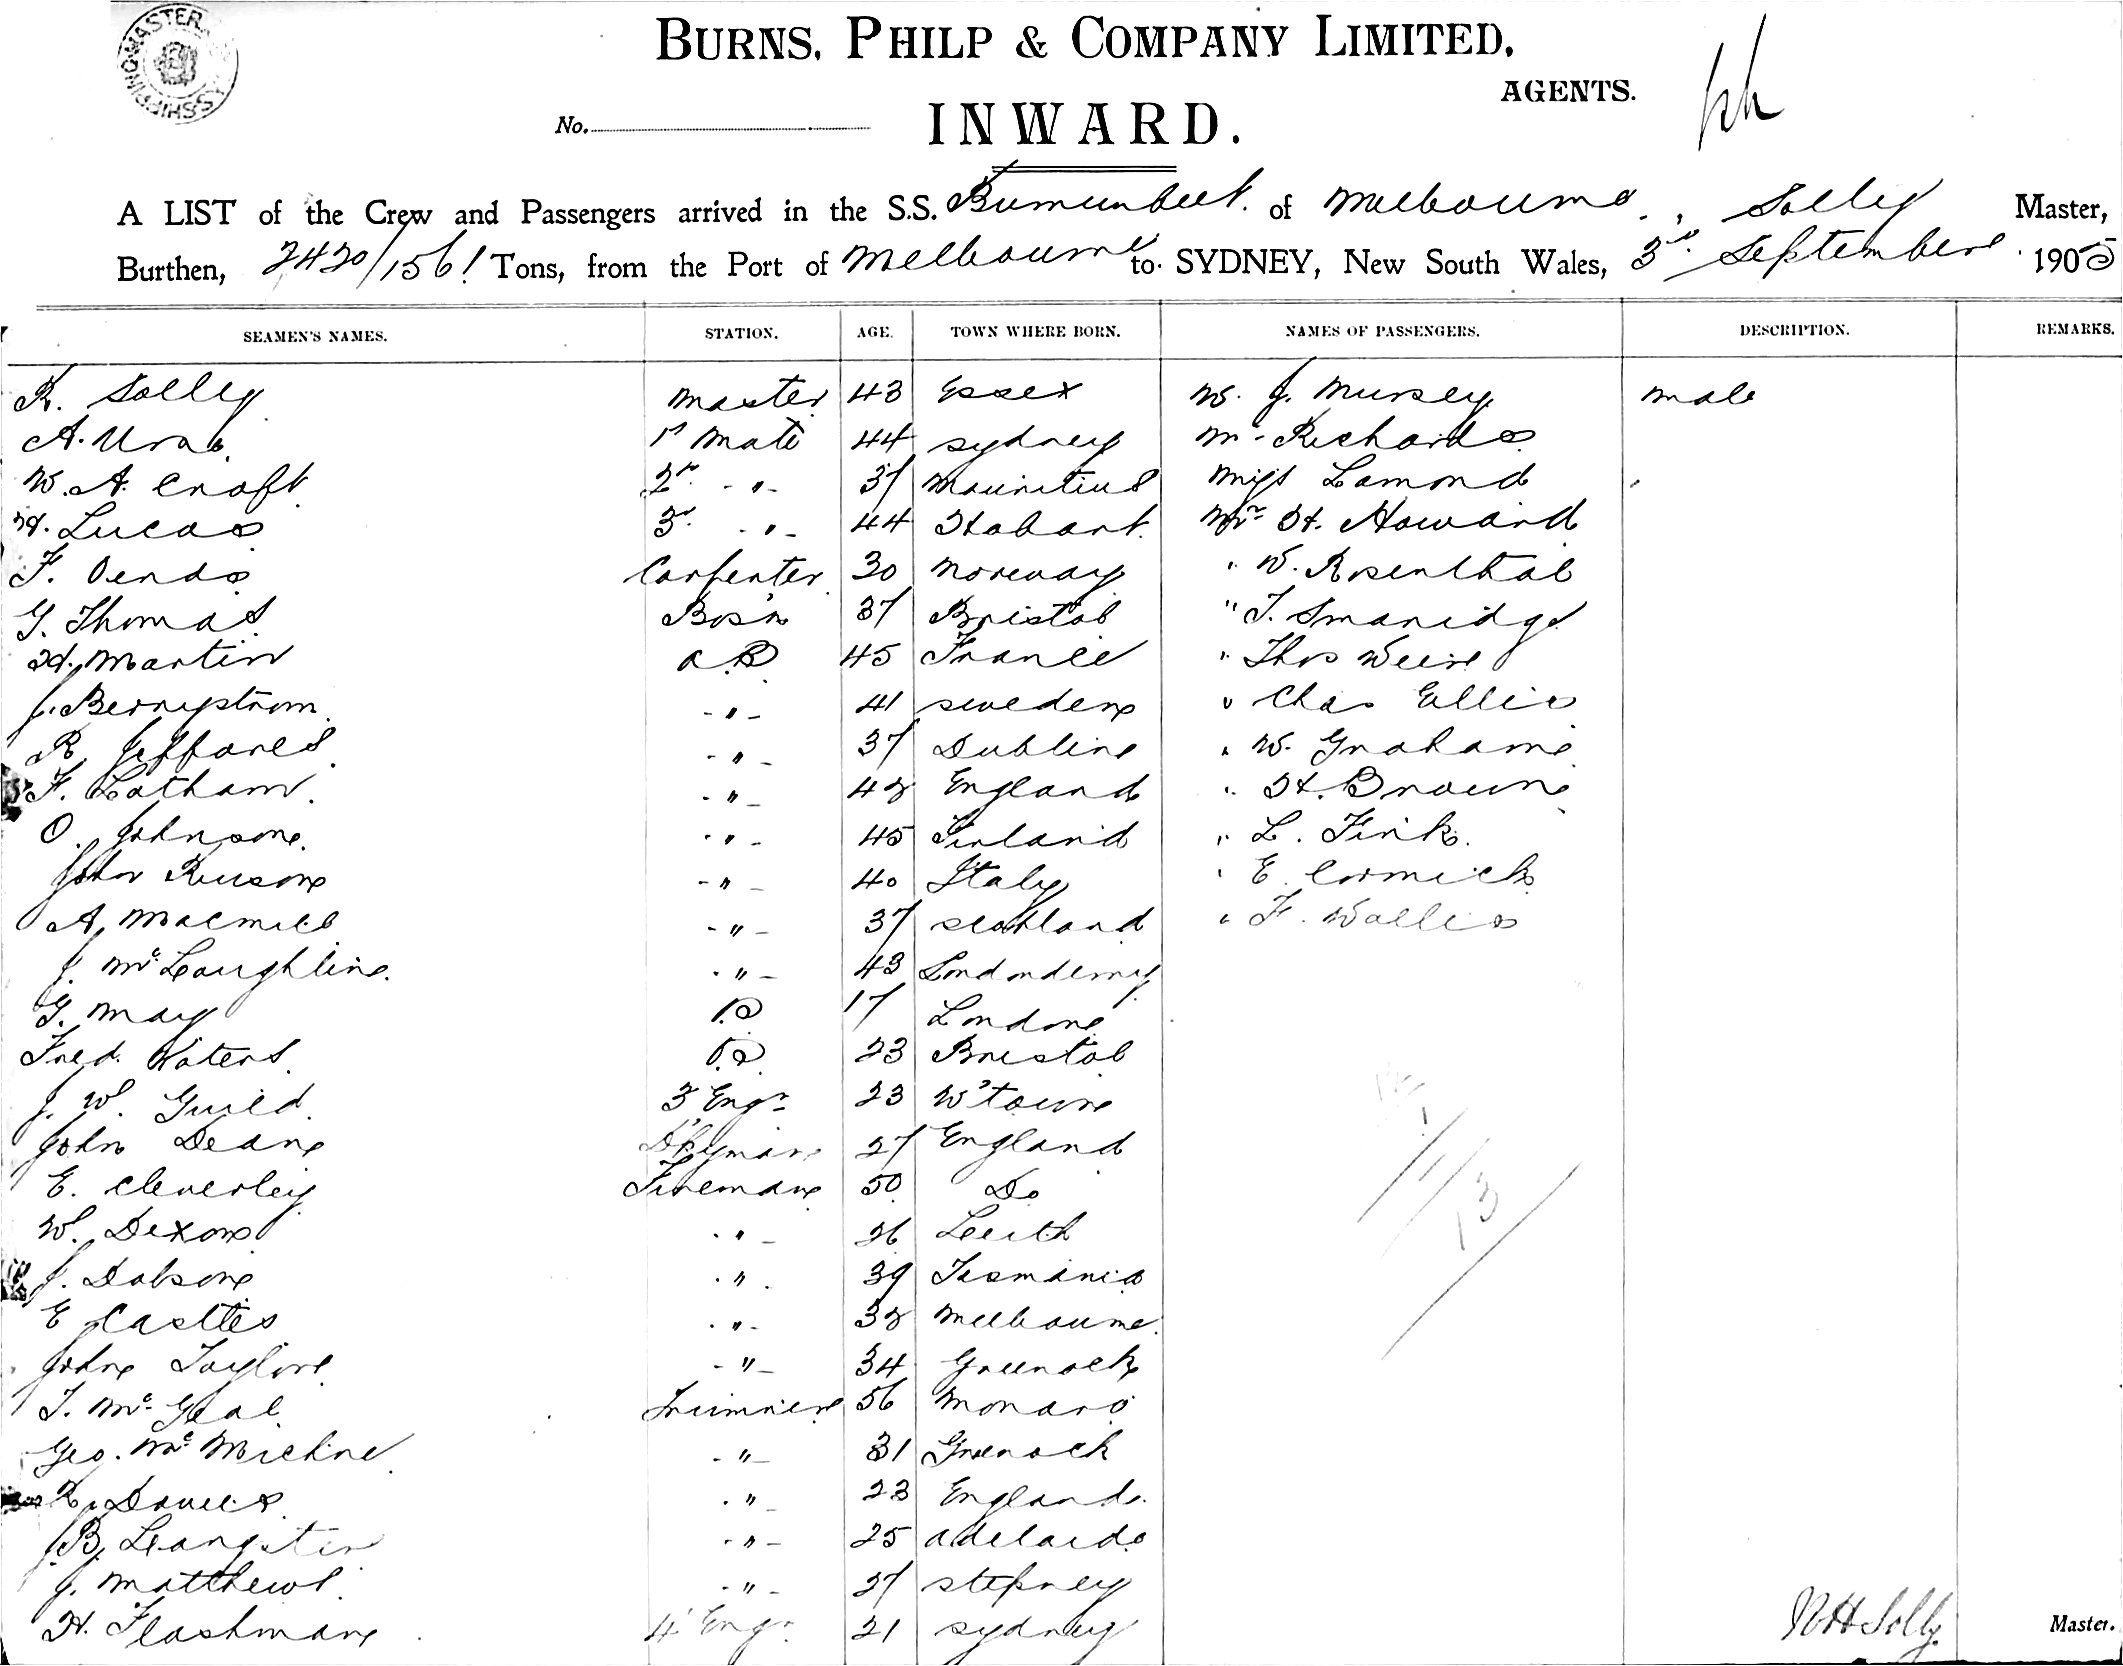 BURNS, PHILP & COMPANY LIMITED,
AGENTS.
No.
INWARD.
A LIST of the Crew and Passengers arrived in the S.S. Burrumbeet of Melbourne, Solly Master,
Burthen, 2420/1561 Tons, from the Port of Melbourne to SYDNEY, New South Wales, 3rd September 1905
SEAMEN'S NAMES. STATION. AGE. TOWN WHERE BORN. NAMES OF PASSENGERS. DESCRIPTION. REMARKS.
R. Solley Master 43 Essex W. J. Mursey Male
A. 1st Mate 44 Sydney Mr Richards
W. A. Croft 2nd " 37 Mauritius Miss Lamond
H. Lucas 3rd " 44 Hobart Mr H. Howard
F. Carpenter 30 Norway " W. Rosenthal
G. Thomas Bos'n 37 Bristol " T. Smaridge
H. Martin A.B 45 France " Thos Weire
J. Berrystrom " 41 Sweden " Chas Ellis
R. Jeffares " 37 Dublin " W. Grahame
F. Latham " 48 England " H. Browne
O. Johnson " 45 Finland " L. Fink
John " 40 Italy " E. Cormick
A. Macmill " 37 Scotland " F. Wallis
J. McLaughline " 43 Londonderry
G. May 17 London
Fred. Waters O.S 23 Bristol
J. W. Guild 3 Engr 23 W'town
John Deane 27 England
E. Cleverley Fireman 50 Do
W. Dixon " 26 Leith
J. Dobson " 39 Tasmania
E Castles " 38 Melbourne
John Taylor " 34 Greenock
T. McGeal Trimmer 56 Monaro
Geo. Mc " 31 Greenock
R. Davies " 23 England
B. " 25 Adelaide
J. Matthews " 27 Stepney
H. Flashman 4 Engr 21 Sydney
RH Solly Master.